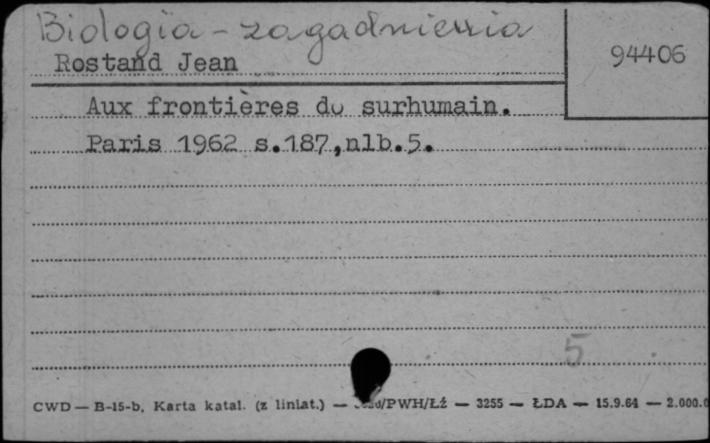 Biologia - zagadnienia
Rostand Jean
94406
Aux frontières du surhumain.
Paris 1962 s.187,nlb.5.
5
CWD — B-15-b. Karta katal. (z liniat.) — /PWH/Łź — 3255 — ŁDA — 15.9.64 — 2.000.0